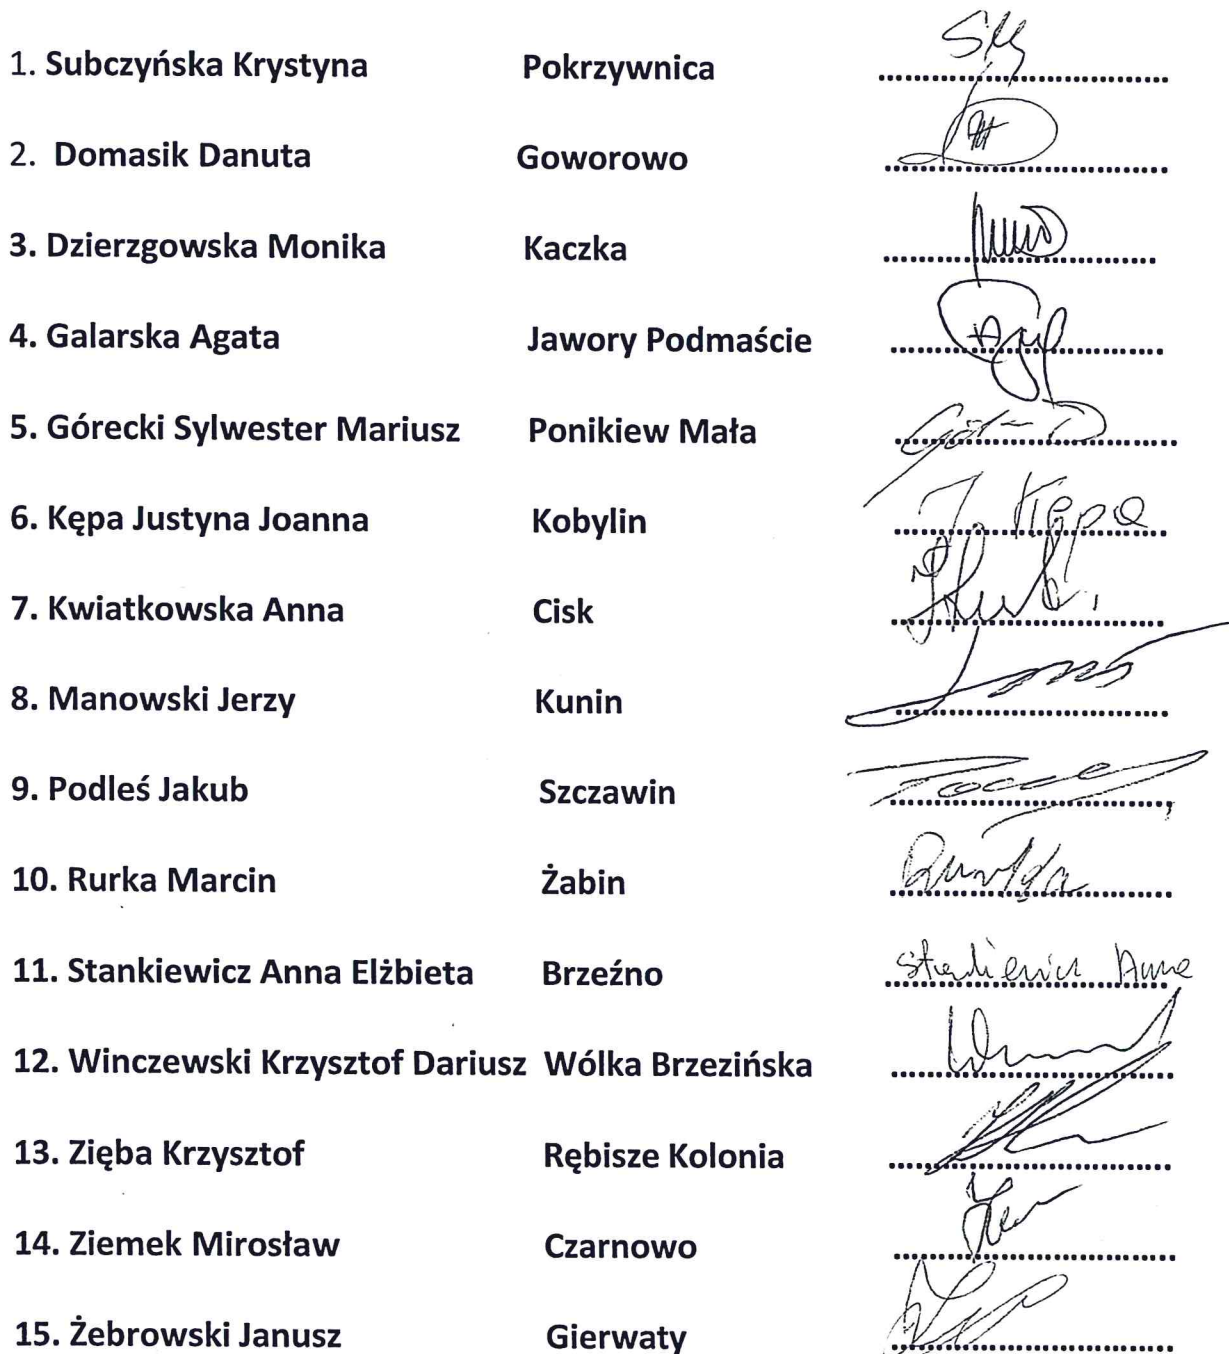 1. Subczyńska Krystyna Pokrzywnica
2. Domasik Danuta Goworowo
3. Dzierzgowska Monika Kaczka
4. Galarska Agata Jawory Podmaście
5. Górecki Sylwester Mariusz Ponikiew Mała
6. Kępa Justyna Joanna Kobylin J. Kępa
7. Kwiatkowska Anna Cisk
8. Manowski Jerzy Kunin
9. Podleś Jakub Szczawin
10. Rurka Marcin Żabin
11. Stankiewicz Anna Elżbieta Brzeźno Stankiewicz Anna
12. Winczewski Krzysztof Dariusz Wólka Brzezińska
13. Zięba Krzysztof Rębisze Kolonia
14. Ziemek Mirosław Czarnowo
15. Żebrowski Janusz Gierwaty